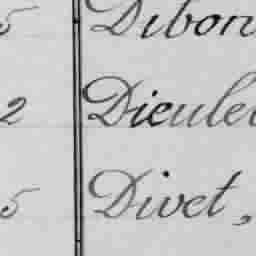 5 Dibon
2 Dieule
5 Divet,